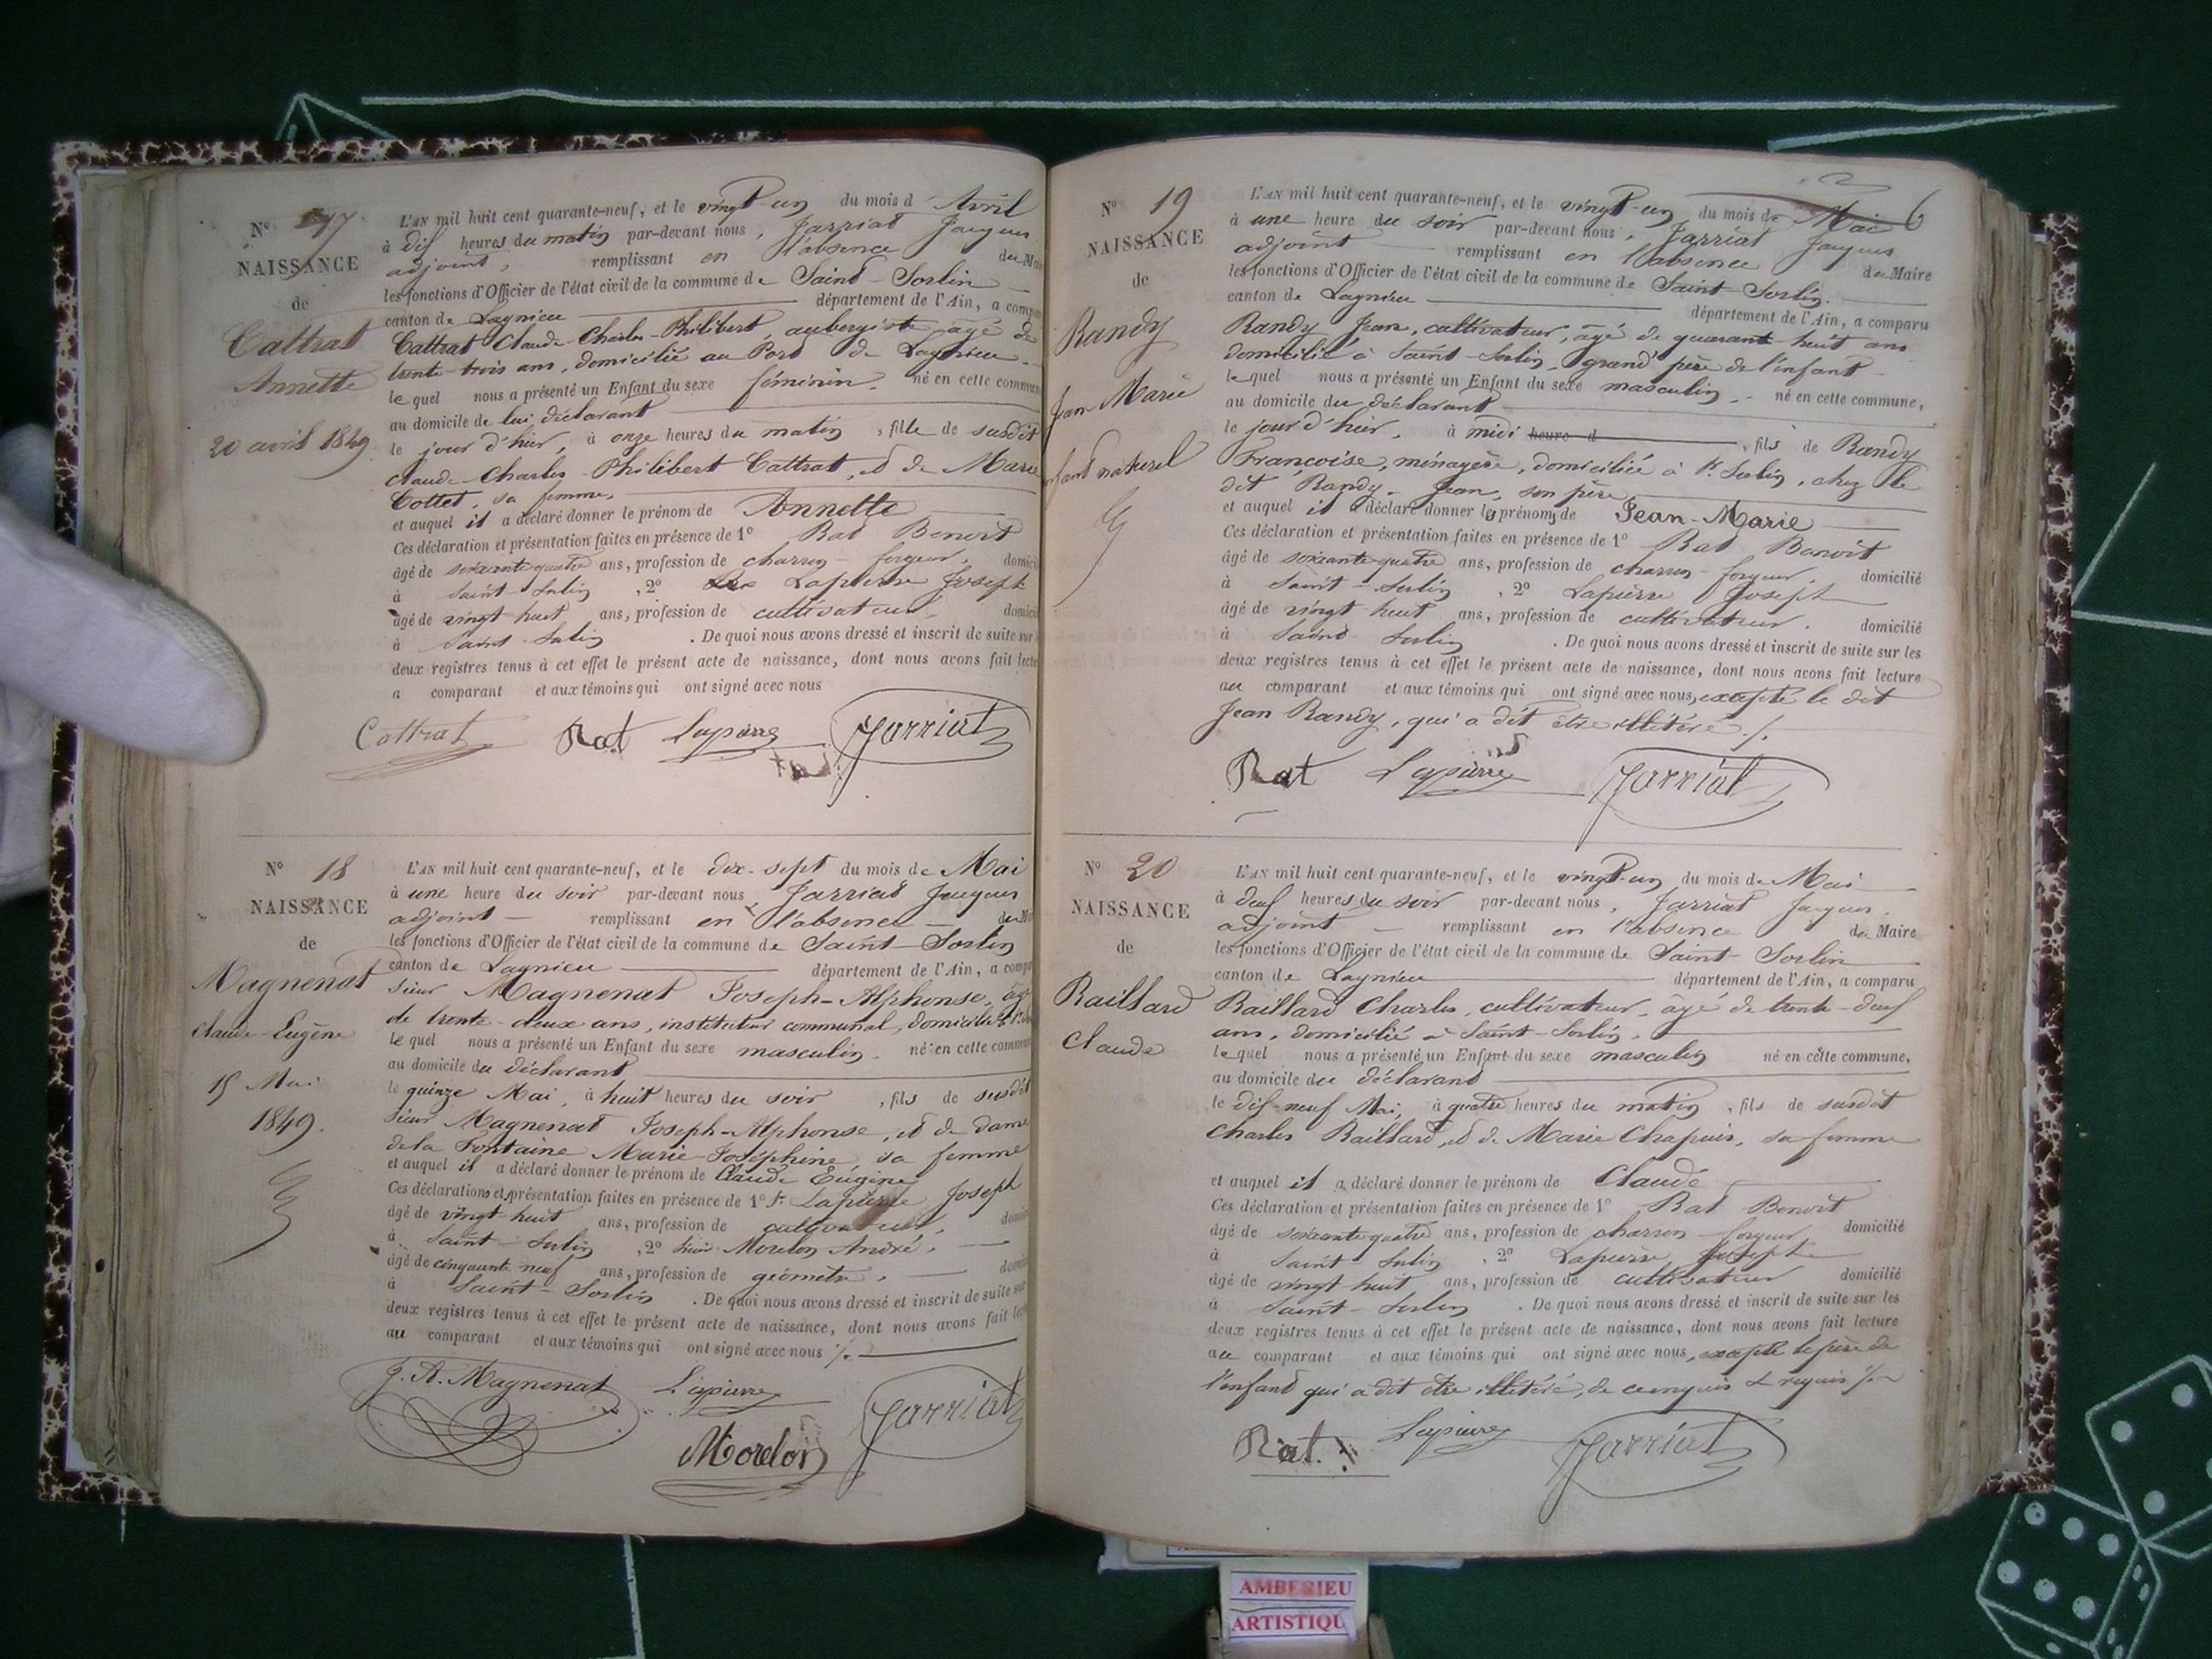 N° 17
NAISSANCE
de
Cattrat
Annette
20 avril 1849
L'AN mil huit cent quarante-neuf, et le vingt-un du mois d'Avril
à dix heures du matin par-devant nous, Jarriat Jacques
adjoint, remplissant en l'absence du
les fonctions d'Officier de l'état civil de la commune de Saint-Sorlin
canton de Lagnieu département de l'Ain, a
Cattrat Claude-Charles-Philibert, aubergiste, âgé de
trente-trois ans, domicilié au Port de Lagnieu
lequel nous a présenté un Enfant du sexe féminin, né en cette
au domicile de lui déclarant
le jour d'hier, à onze heures du matin, fille de susdit
Claude-Charles-Philibert Cattrat, et de Marie
Cottet, sa femme,
et auquel il a déclaré donner le prénom de Annette
Ces déclaration et présentation faites en présence de 1° Rat Benoit
âgé de soixante quatre ans, profession de charron-forgeur,
à Saint-Sorlin, 2° Lapierre Joseph
âgé de vingt huit ans, profession de cultivateur
à Saint-Sorlin. De quoi nous avons dressé et inscrit de suite sur
deux registres tenus à cet effet le présent acte de naissance, dont nous avons fait
a comparant et aux témoins qui ont signé avec nous
Cattrat Rat Lapierre Jarriat
N° 18
NAISSANCE
de
Magnenat
Claude-Eugène
15 Mai
1849.
L'AN mil huit cent quarante-neuf, et le dix-sept du mois de Mai
à une heure du soir par-devant nous, Jarriat Jacques
adjoint remplissant en l'absence
les fonctions d'Officier de l'état civil de la commune de Saint-Sorlin
canton de Lagnieu département de l'Ain, a
sieur Magnenat Joseph-Alphonse,
de trente-deux ans, instituteur communal, domicilié à
lequel nous a présenté un Enfant du sexe masculin, né en cette
au domicile du déclarant
le quinze Mai, à huit heures du soir, fils de susdit
sieur Magnenat Joseph-Alphonse, et de dame
de la Fontaine Marie-Joséphine, sa femme
et auquel il a déclaré donner le prénom de Claude Eugène
Ces déclarations et présentation faites en présence de 1° Sr Lapierre Joseph
âgé de vingt-huit ans, profession de cultivateur,
à Saint-Sorlin, 2° sieur Morelon André,
âgé de cinquante neuf ans, profession de géomètre,
à Saint-Sorlin. De quoi nous avons dressé et inscrit de suite
deux registres tenus à cet effet le présent acte de naissance, dont nous avons fait
au comparant et aux témoins qui ont signé avec nous
J. A. Magnenat Lapierre Jarriat
Morelon
6
N° 19
NAISSANCE
de
Randy
Jean-Marie
naturel
L'AN mil huit cent quarante-neuf, et le vingt-un du mois de Mai
à une heure du soir par-devant nous, Jarriat Jacques
adjoint remplissant en l'absence du Maire
les fonctions d'Officier de l'état civil de la commune de Saint-Sorlin.
canton de Lagnieu département de l'Ain, a comparu
Randy Jean, cultivateur, âgé de quarante-huit ans
domicilié à Saint-Sorlin, grand père de l'enfant
lequel nous a présenté un Enfant du sexe masculin, né en cette commune,
au domicile du déclarant
le jour d'hier, à midi heure d, fils de Randy
Francoise, ménagère, domiciliée à St Sorlin, chez le
dit Randy Jean, son père,
et auquel il a déclaré donner les prénoms de Jean-Marie
Ces déclaration et présentation faites en présence de 1° Rat Benoit
âgé de soixante quatre ans, profession de charron-forgeur, domicilié
à Saint-Sorlin, 2° Lapierre Joseph
âgé de vingt huit ans, profession de cultivateur, domicilié
à Saint-Sorlin. De quoi nous avons dressé et inscrit de suite sur les
deux registres tenus à cet effet le présent acte de naissance, dont nous avons fait lecture
au comparant et aux témoins qui ont signé avec nous, excepté le dit
Jean Randy, qui a dit être illétéré
Rat Lapierre Jarriat
N° 20
NAISSANCE
de
Raillard
Claude
L'AN mil huit cent quarante-neuf, et le vingt-un du mois de Mai
à deux heures du soir par-devant nous, Jarriat Jacques
adjoint remplissant en l'absence du Maire
les fonctions d'Officier de l'état civil de la commune de Saint-Sorlin
canton de Lagnieu département de l'Ain, a comparu
Raillard Charles, cultivateur, âgé de trente-deux
ans, domicilié à Saint-Sorlin,
lequel nous a présenté un Enfant du sexe masculin né en cette commune,
au domicile du déclarant
le dix-neuf Mai, à quatre heures du matin, fils de susdit
Charles Raillard, et de Marie Chapuis, sa femme
et auquel il a déclaré donner le prénom de Claude
Ces déclaration et présentation faites en présence de 1° Rat Benoit
âgé de soixante quatre ans, profession de charron-forgeur domicilié
à Saint-Sorlin, 2° Lapierre Joseph
âgé de vingt huit ans, profession de cultivateur domicilié
à Saint-Sorlin. De quoi nous avons dressé et inscrit de suite sur les
deux registres tenus à cet effet le présent acte de naissance, dont nous avons fait lecture
au comparant et aux témoins qui ont signé avec nous, excepté le père de
l'enfant qui a dit être illétéré, de ce enquis & requis
Rat. Lapierre Jarriat
AMBERIEU
ARTISTIQU